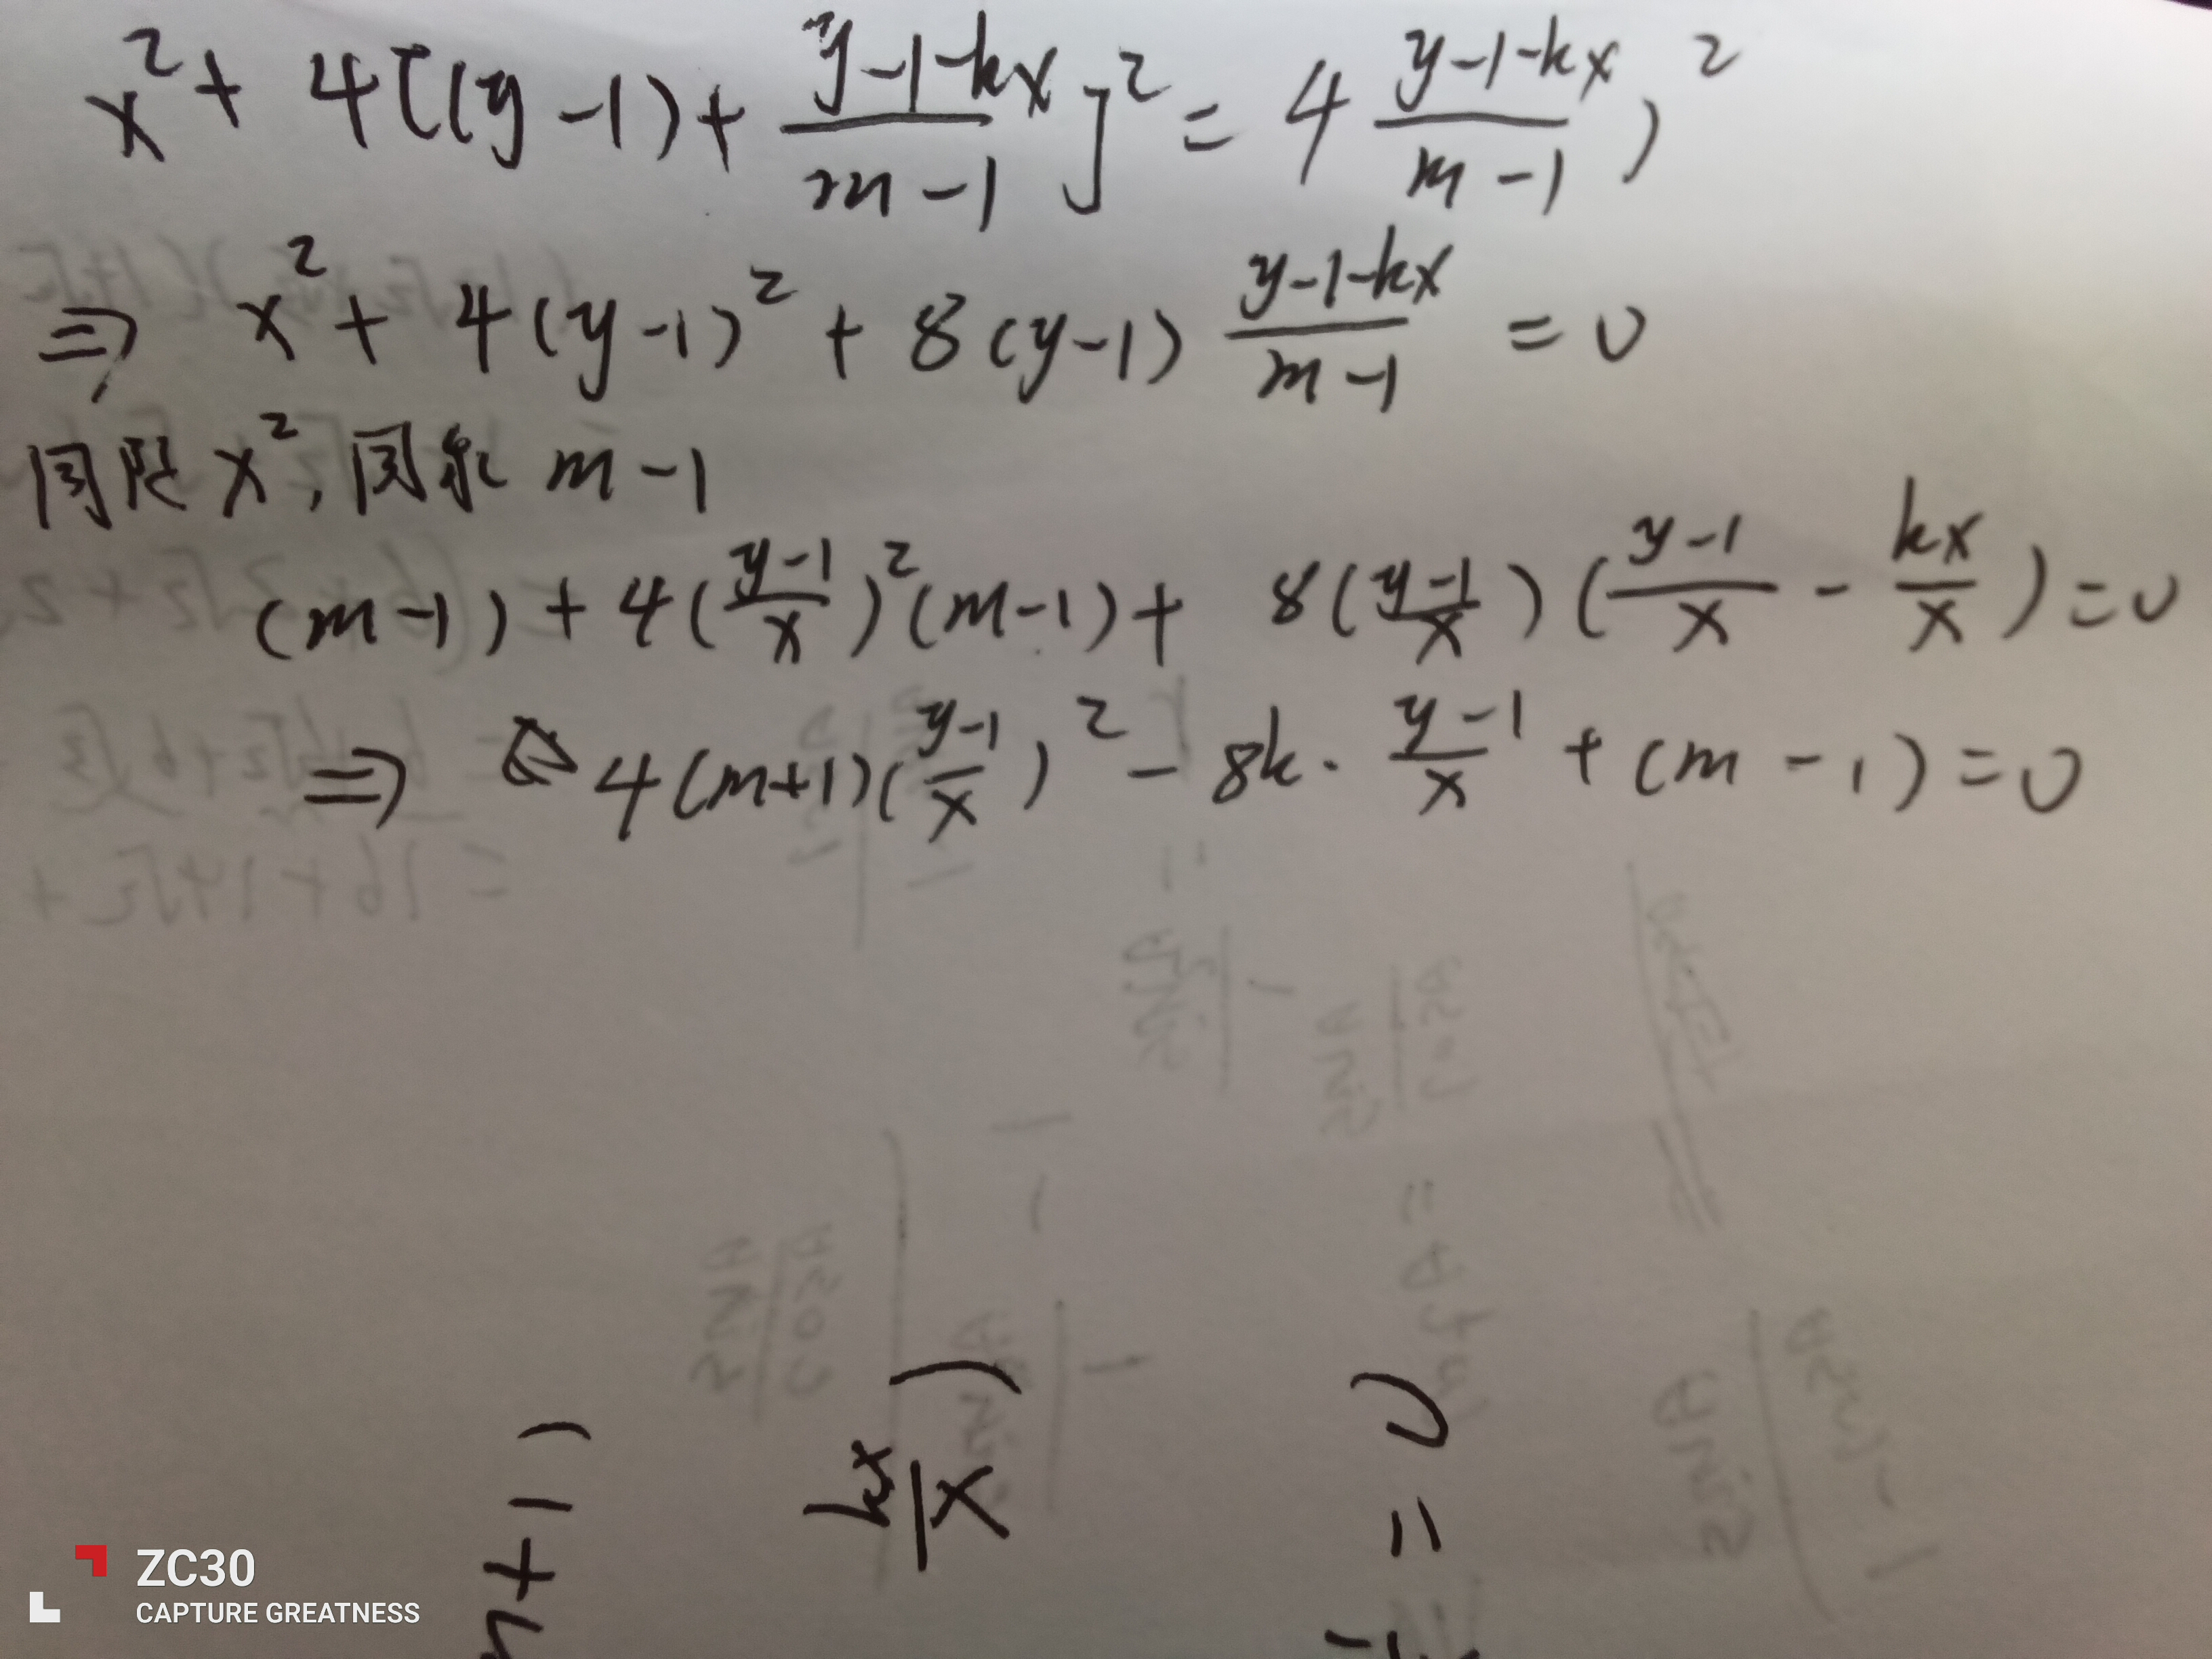 x² + 4[(y-1) + (y-1-kx)/(m-1)]² = 4 (y-1-kx)/(m-1))²
⇒ x² + 4(y-1)² + 8(y-1) (y-1-kx)/(m-1) = 0
同除 x², 同乘 m-1
(m-1) + 4((y-1)/x)²(m-1) + 8((y-1)/x)((y-1)/x - kx/x) = 0
⇒ 4(m+1)((y-1)/x)² - 8k · (y-1)/x + (m-1) = 0
+1)
kx/x)
= 0
ZC30
CAPTURE GREATNESS